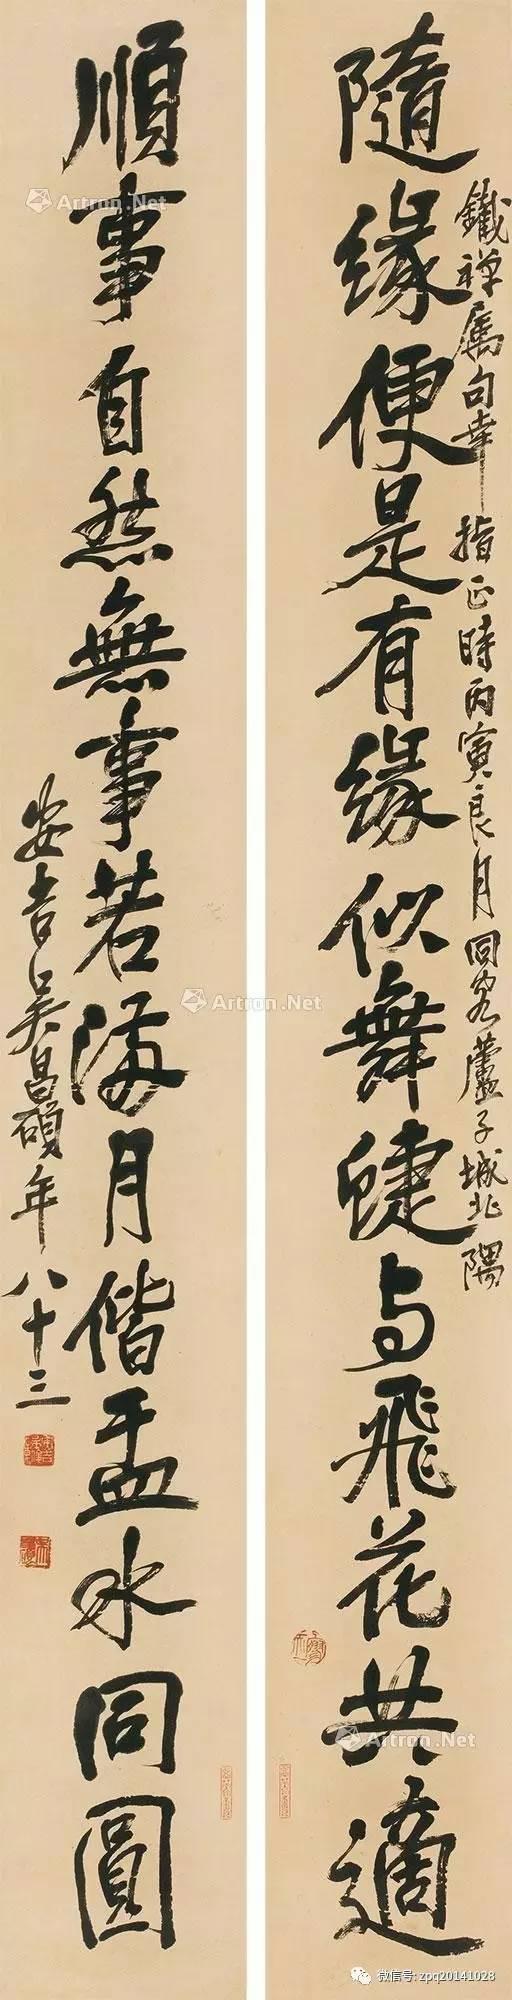 鐵禪屬句幸指正時丙寅良月同客蘆子城北隅
隨緣便是有緣似舞蜨与飛花共適
順事自然無事若满月偕盂水同圓
安吉吳昌碩年八十三
Artron.Net
Artron.Net
Artron.Net
Artron.Net
Artron.Net
Artron.Net
微信号: zpq20141028